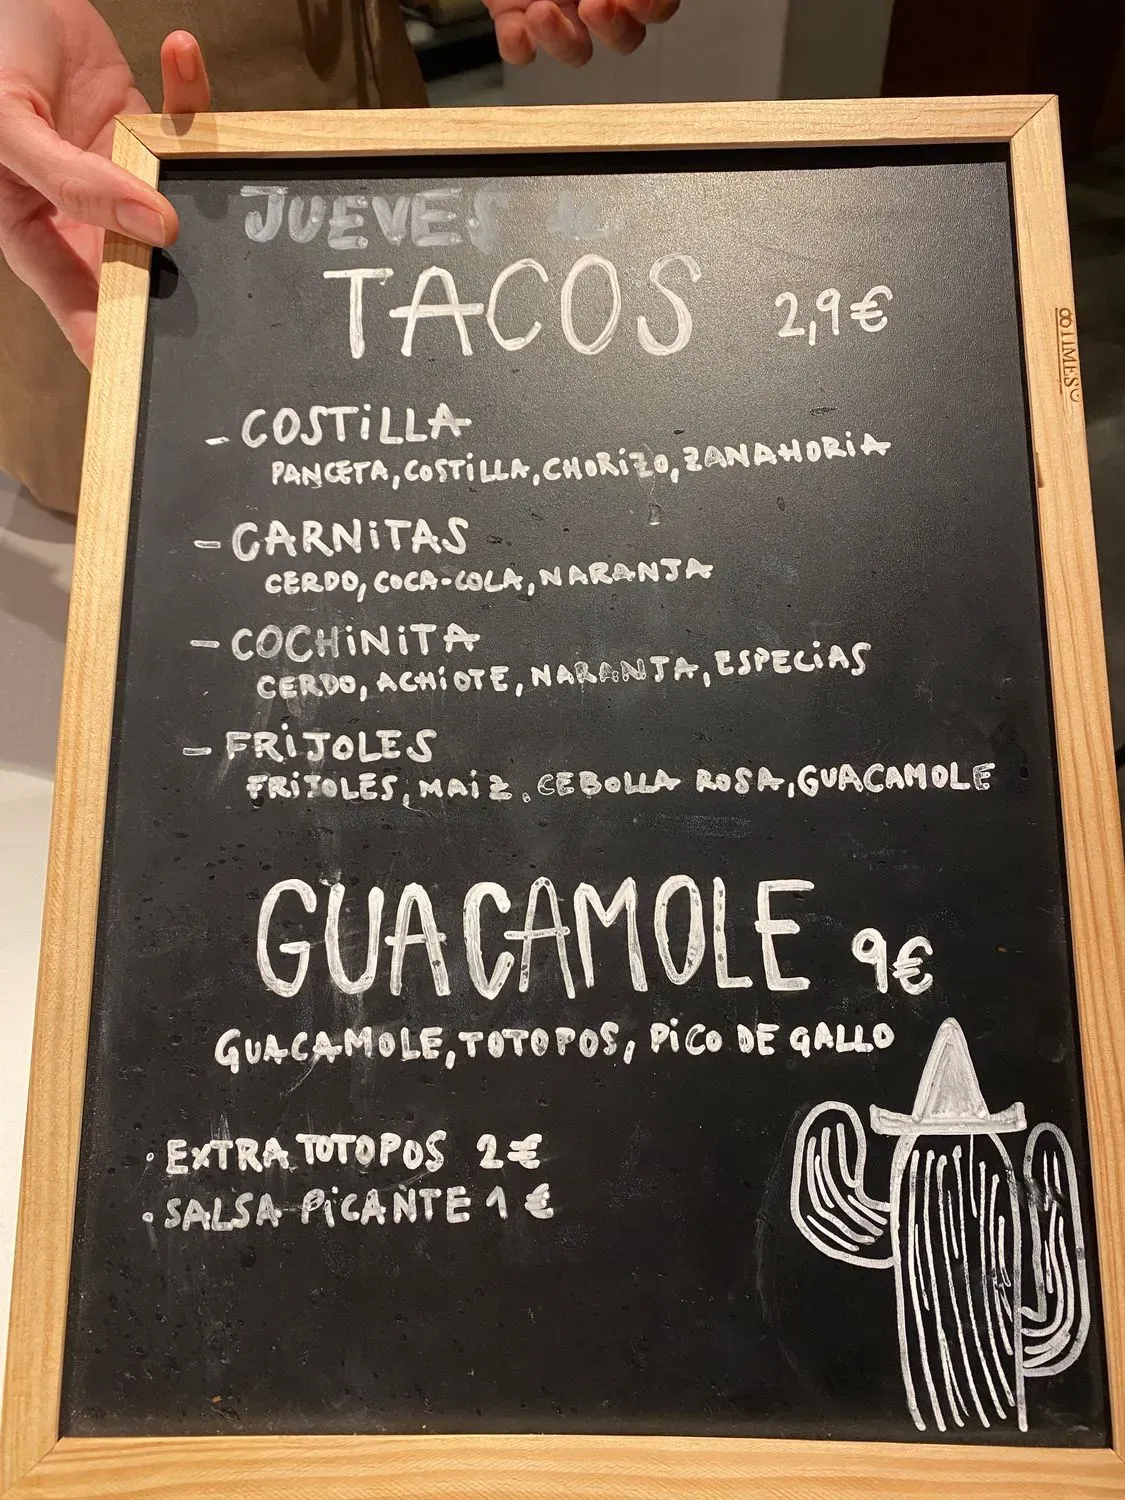 JUEVES de
TACOS 2,9€
- COSTiLLA
PANCETA, COSTiLLA, CHORiZO, ZANAHORiA
- CARNiTAS
CERDO, COCA-COLA, NARANJA
- COCHiNiTA
CERDO, ACHiOTE, NARANJA, ESPECiAS
- FRiJOLES
FRiJOLES, MAiZ, CEBOLLA ROSA, GUACAMOLE
GUACAMOLE 9€
GUACAMOLE, TOTOPOS, PiCO DE GALLO
· EXTRA TOTOPOS 2€
· SALSA PiCANTE 1€